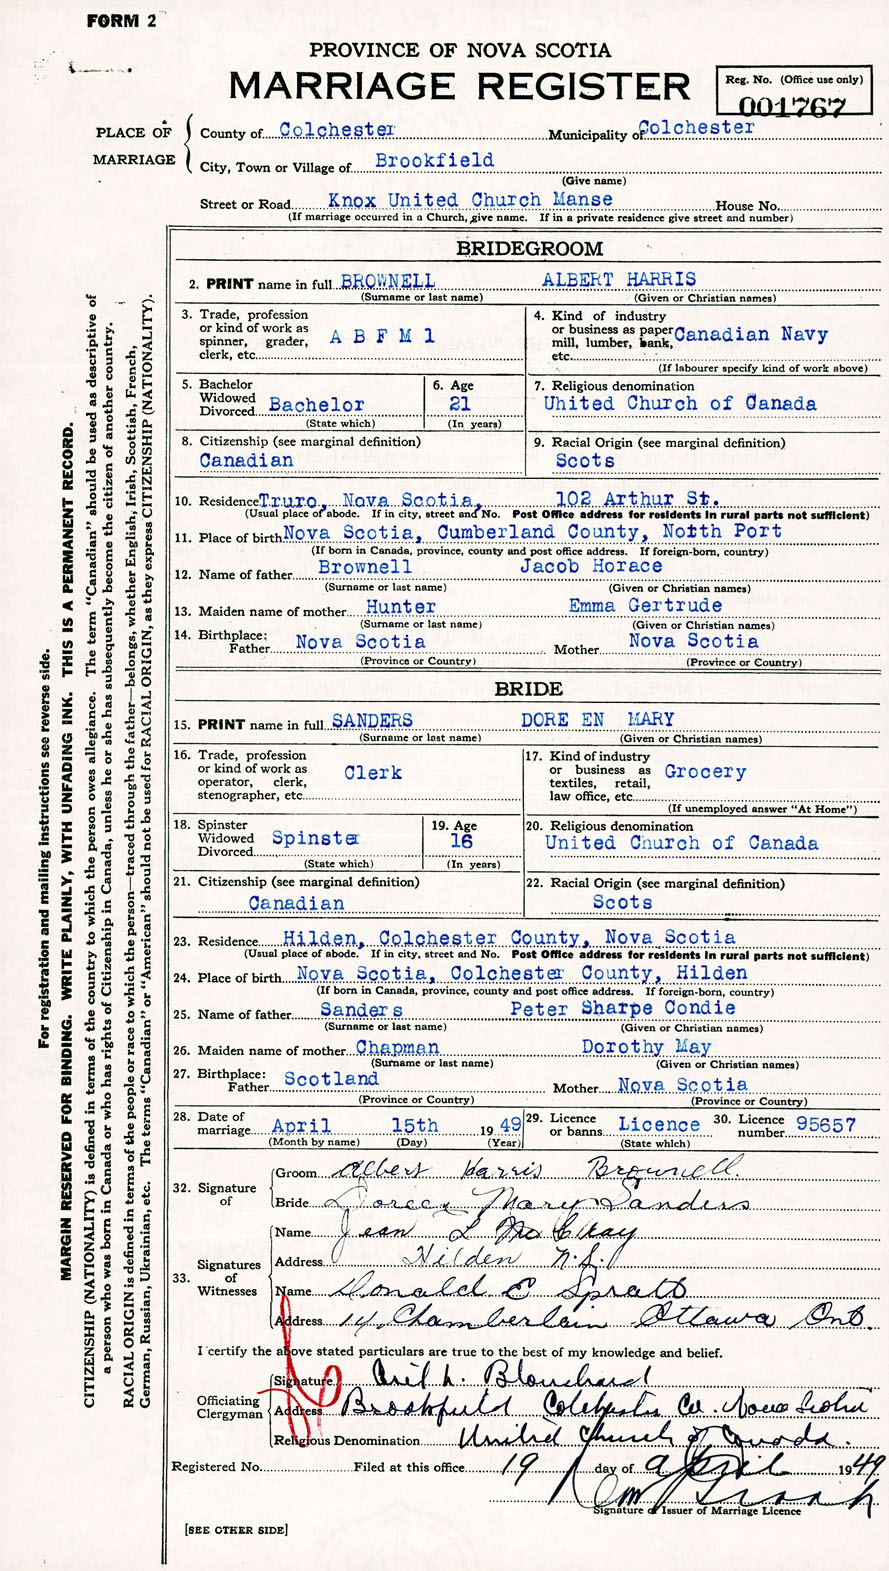 FORM 2
PROVINCE OF NOVA SCOTIA
MARRIAGE REGISTER
Reg. No. (Office use only)
001767
PLACE OF MARRIAGE
County of Colchester Municipality of Colchester
City, Town or Village of Brookfield
(Give name)
Street or Road Knox United Church Manse House No.
(If marriage occurred in a Church, give name. If in a private residence give street and number)
BRIDEGROOM
2. PRINT name in full BROWNELL ALBERT HARRIS
(Surname or last name) (Given or Christian names)
3. Trade, profession
or kind of work as
spinner, grader,
clerk, etc. A B F M 1
4. Kind of industry
or business as paper
mill, lumber, bank,
etc. Canadian Navy
(If labourer specify kind of work above)
5. Bachelor
Widowed
Divorced Bachelor
(State which)
6. Age
21
(In years)
7. Religious denomination
United Church of Canada
8. Citizenship (see marginal definition)
Canadian
9. Racial Origin (see marginal definition)
Scots
10. Residence Truro, Nova Scotia, 102 Arthur St.
(Usual place of abode. If in city, street and No. Post Office address for residents in rural parts not sufficient)
11. Place of birth Nova Scotia, Cumberland County, North Port
(If born in Canada, province, county and post office address. If foreign-born, country)
12. Name of father Brownell Jacob Horace
(Surname or last name) (Given or Christian names)
13. Maiden name of mother Hunter Emma Gertrude
(Surname or last name) (Given or Christian names)
14. Birthplace:
Father Nova Scotia Mother Nova Scotia
(Province or Country) (Province or Country)
BRIDE
15. PRINT name in full SANDERS DORE EN MARY
(Surname or last name) (Given or Christian names)
16. Trade, profession
or kind of work as
operator, clerk,
stenographer, etc. Clerk
17. Kind of industry
or business as
textiles, retail,
law office, etc. Grocery
(If unemployed answer "At Home")
18. Spinster
Widowed
Divorced Spinster
(State which)
19. Age
16
(In years)
20. Religious denomination
United Church of Canada
21. Citizenship (see marginal definition)
Canadian
22. Racial Origin (see marginal definition)
Scots
23. Residence Hilden, Colchester County, Nova Scotia
(Usual place of abode. If in city, street and No. Post Office address for residents in rural parts not sufficient)
24. Place of birth Nova Scotia, Colchester County, Hilden
(If born in Canada, province, county and post office address. If foreign-born, country)
25. Name of father Sanders Peter Sharpe Condie
(Surname or last name) (Given or Christian names)
26. Maiden name of mother Chapman Dorothy May
(Surname or last name) (Given or Christian names)
27. Birthplace:
Father Scotland Mother Nova Scotia
(Province or Country) (Province or Country)
28. Date of
marriage April 15th 1949
(Month by name) (Day) (Year)
29. Licence
or banns Licence
(State which)
30. Licence
number 95657
32. Signature
of
Groom Albert Harris Brownell
Bride Doreen Mary Sanders
33. Signatures
of
Witnesses
Name Jean L
Address Hilden N.S.
Name Donald E Spratt
Address 14 Chamberlain Ottawa Ont.
I certify the above stated particulars are true to the best of my knowledge and belief.
Officiating
Clergyman
Signature Blanchard
Address Brookfield Colchester Co. Nova Scotia
Religious Denomination United Church of Canada.
Registered No. Filed at this office 19 day of April 1949
Signature of Issuer of Marriage Licence
[SEE OTHER SIDE]
For registration and mailing instructions see reverse side.
MARGIN RESERVED FOR BINDING. WRITE PLAINLY, WITH UNFADING INK. THIS IS A PERMANENT RECORD.
CITIZENSHIP (NATIONALITY) is defined in terms of the country to which the person owes allegiance. The term "Canadian" should be used as descriptive of
a person who was born in Canada or who has rights of Citizenship in Canada, unless he or she has subsequently become the citizen of another country.
RACIAL ORIGIN is defined in terms of the people or race to which the person—traced through the father—belongs, whether English, Irish, Scottish, French,
German, Russian, Ukrainian, etc. The terms "Canadian" or "American" should not be used for RACIAL ORIGIN, as they express CITIZENSHIP (NATIONALITY).